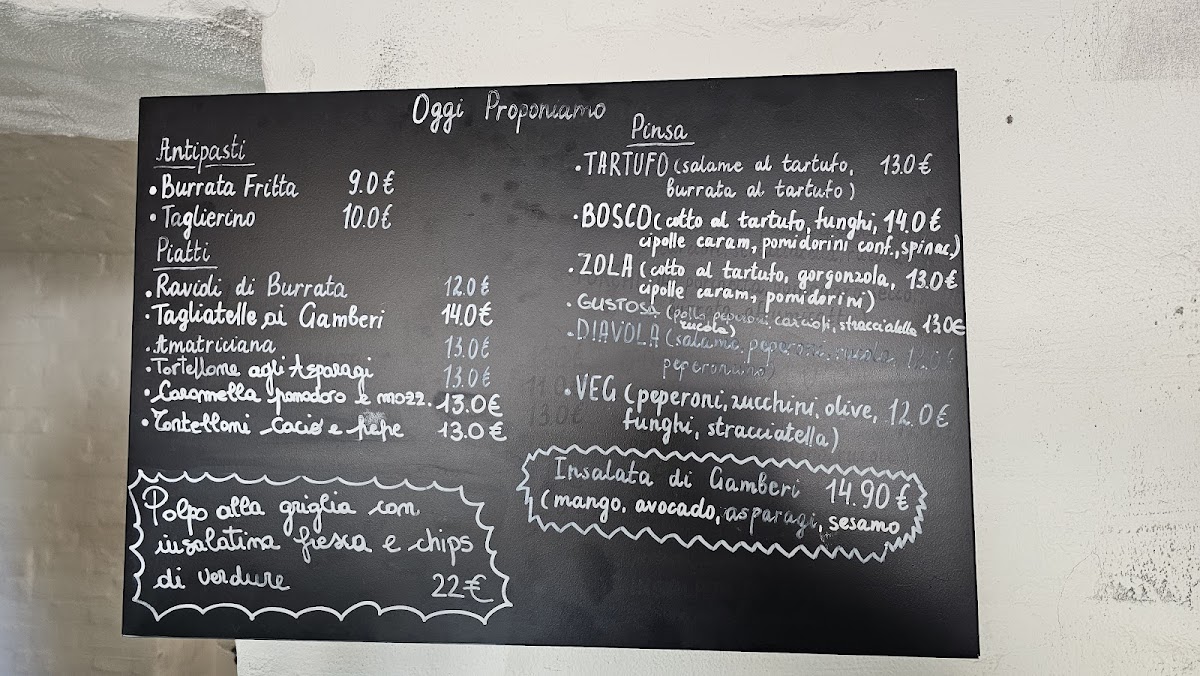 Oggi Proponiamo
Antipasti
• Burrata Fritta 9.0€
• Taglierino 10.0€
Piatti
• Ravioli di Burrata 12.0€
• Tagliatelle ai Gamberi 14.0€
• Amatriciana 13.0€
• Tortellone agli Asparagi 13.0€
• Caramella pomodoro e mozz. 13.0€
• Tortelloni Cacio e pepe 13.0€
Polpo alla griglia con
insalatina fresca e chips
di verdure 22€
Pinsa
• TARTUFO (salame al tartufo, 13.0€
burrata al tartufo)
• BOSCO (cotto al tartufo, funghi, 14.0€
cipolle caram, pomidorini conf., spinac)
• ZOLA (cotto al tartufo, gorgonzola, 13.0€
cipolle caram, pomidorini)
• GUSTOSA (pollo, peperoni, carciofi, stracciatella 13.0€
rucola)
• DIAVOLA (salame, peperoni, rucola,
peperoncino)
• VEG (peperoni, zucchini, olive, 12.0€
funghi, stracciatella)
Insalata di Gamberi 14.90€
(mango, avocado, asparagi, sesamo